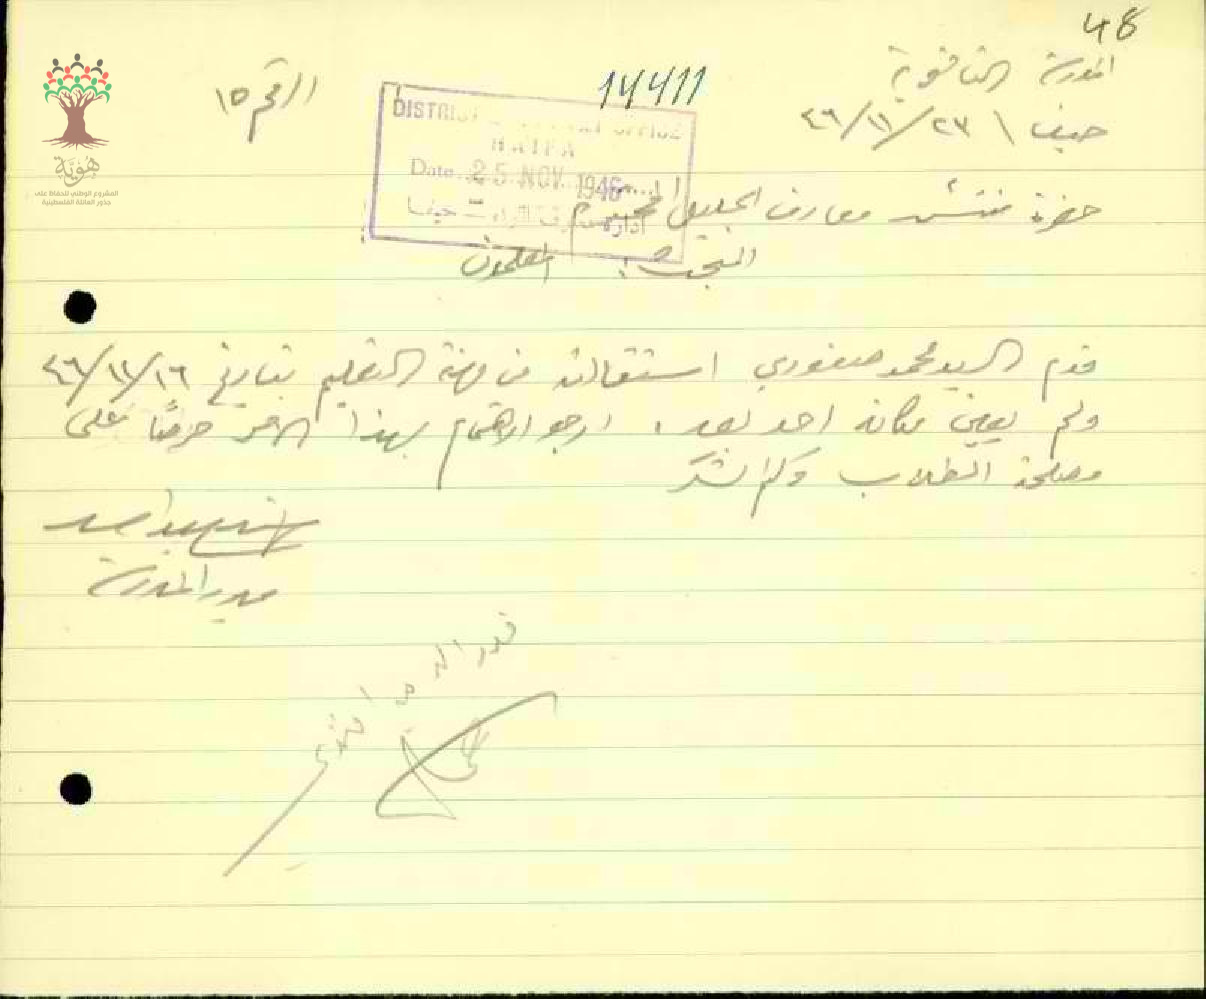 48
المدرسة الثانوية
14411
الرقم ١٥
حيفا ٢٣/١١/٤٦
DISTRICT OFFICE
HAIFA
Date 25 NOV 1946
ادارة حيفا
حضرة مفتش معارف الجليل المحترم
البحث: المعلمون
قدم السيد محمد صفوري استقالته من مهنة التعليم بتاريخ ١٦/١١/٤٦
ولم يعين مكانه احد بعد. ارجو الاهتمام بهذا الامر حرصًا على
مصلحة الطلاب ولكم الشكر
مدير المدرسة
هُويَّة
المشروع الوطني للحفاظ على
جذور العائلة الفلسطينية